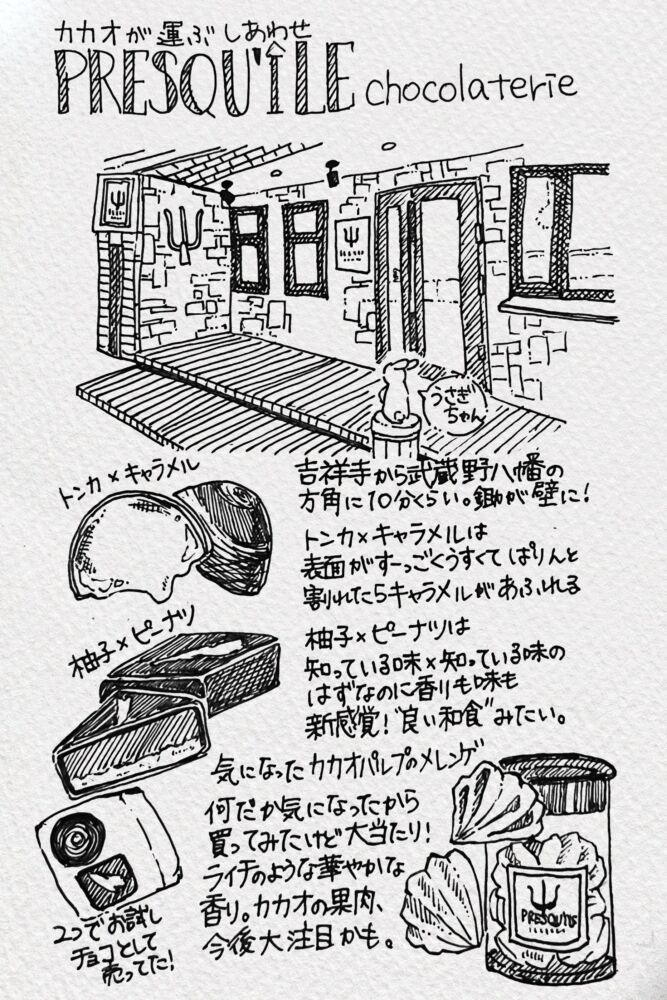 カカオが運ぶしあわせ
PRESQU'ÎLE chocolaterie
うさぎ
ちゃん
トンカ×キャラメル
吉祥寺から武蔵野八幡の
方角に10分くらい。鋤が壁に!
トンカ×キャラメルは
表面がすーっごくうすくて ぱりんと
割れたらキャラメルがあふれる
柚子×ピーナツ
柚子×ピーナツは
知っている味×知っている味の
はずなのに香りも味も
新感覚!"良い和食"みたい。
気になったカカオパルプのメレンゲ
何だか気になったから
買ってみたけど大当たり!
ライチのような華やかな
香り。カカオの果肉、
今後大注目かも。
2つでお試し
チョコとして
売ってた!